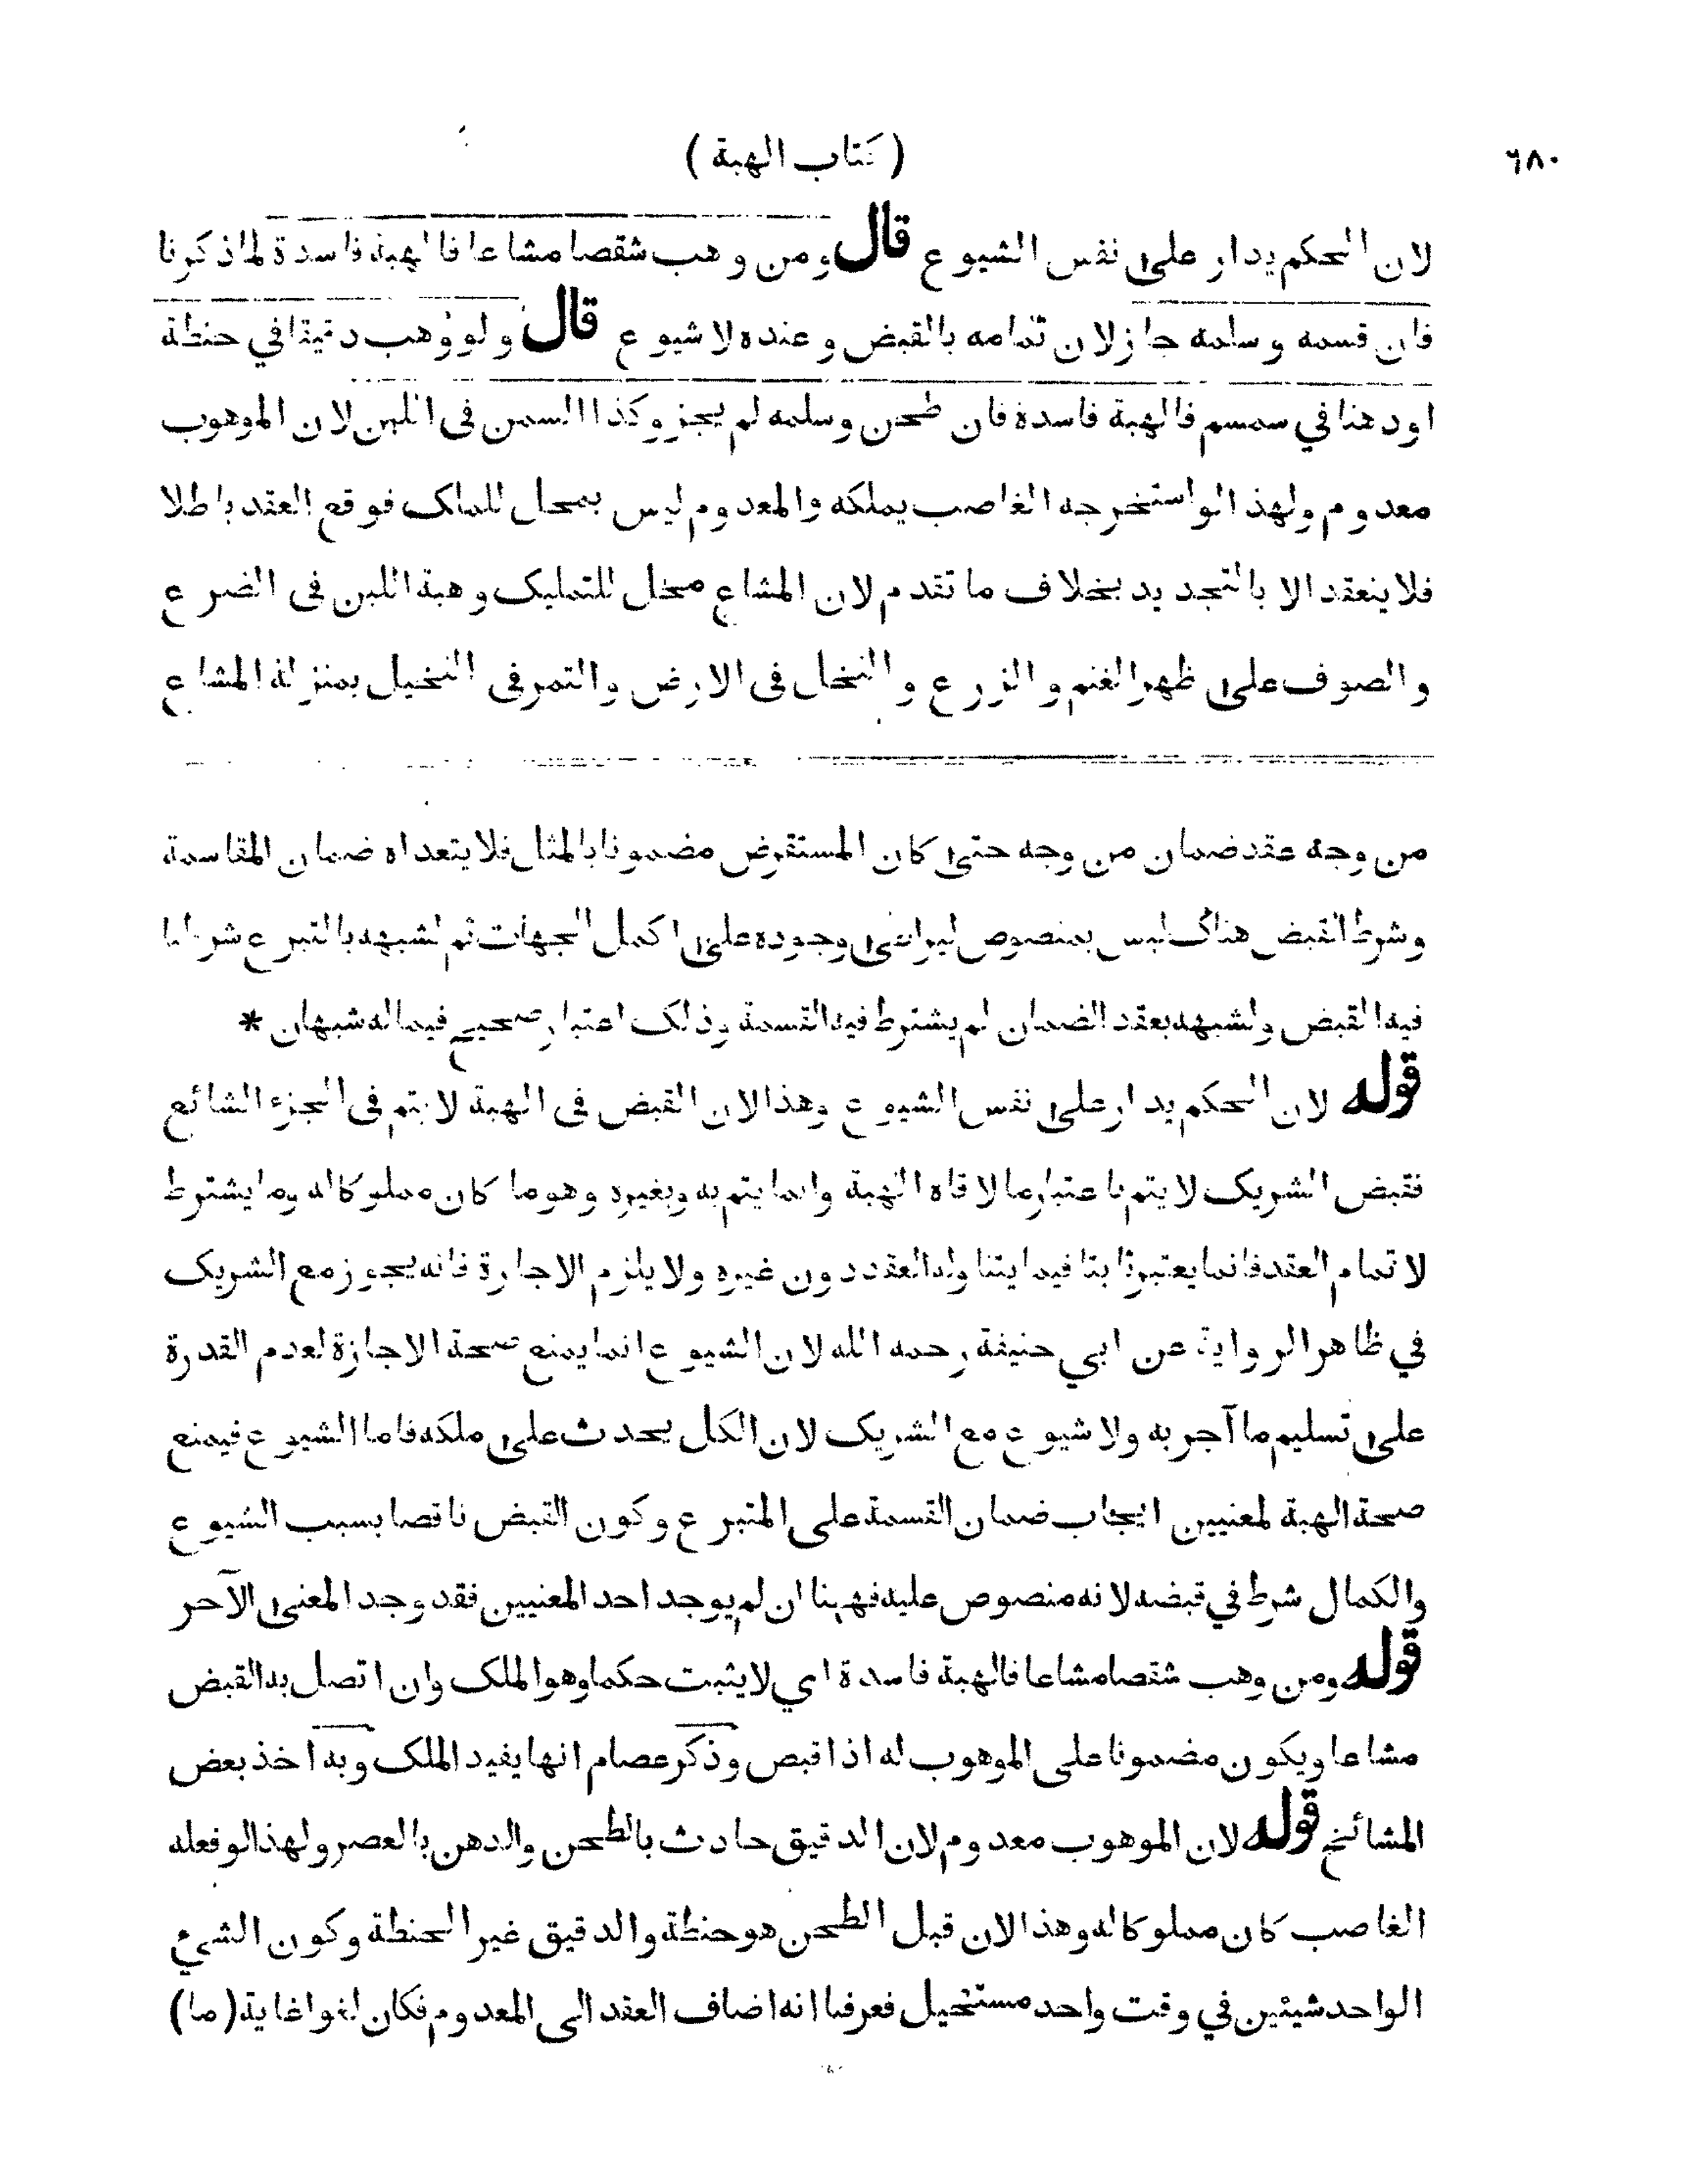 ٦٨٠
( كتاب الهبة )
لان الحكم يدار على نفس الشيوع قال ومن وهب شقصا مشاعا فالهبة فاسدة لما ذكرنا
فان قسمه وسلمه جاز لان تمامه بالقبض وعنده لا شيوع قال ولو وهب دقيقا في حنطة
او دهنا في سمسم فالهبة فاسدة فان طحن وسلمه لم يجز وكذا السمن في اللبن لان الموهوب
معدوم ولهذا لو استخرجه الغاصب يملكه والمعدوم ليس بمحل للملك فوقع العقد باطلا
فلا ينعقد الا بالتجديد بخلاف ما تقدم لان المشاع محل للتمليك وهبة اللبن في الضرع
والصوف على ظهر الغنم والزرع والنخل في الارض والتمر في النخيل بمنزلة المشاع
من وجه عقد ضمان من وجه حتى كان المستقرض مضمونا بالمثل فلا يتعداه ضمان المقاسمة
وشرط القبض هناك ليس بمنصوص ليراعى وجوده على اكمل الجهات ثم لشبهه بالتبرع شرطنا
فيه القبض ولشبهه بعقد الضمان لم يشترط فيه القسمة وذلك اعتبار صحيح فيما له شبهان *
قوله لان الحكم يدار على نفس الشيوع وهذا لان القبض في الهبة لا يتم في الجزء الشائع
فقبض الشريك لا يتم باعتبار ما لاقاه الهبة وانما يتم به وبغيره وهو ما كان مملوكا له وما يشترط
لاتمام العقد فانما يعتبر ثابتا فيما يتناوله العقد دون غيره ولا يلزم الاجارة فانه يجوز مع الشريك
في ظاهر الرواية عن ابي حنيفة رحمه الله لان الشيوع انما يمنع صحة الاجازة لعدم القدرة
على تسليم ما آجر به ولا شيوع مع الشريك لان الكل يحدث على ملكه فاما الشيوع فيمنع
صحة الهبة لمعنيين ايجاب ضمان القسمة على المتبرع وكون القبض ناقصا بسبب الشيوع
والكمال شرط في قبضه لانه منصوص عليه فههنا ان لم يوجد احد المعنيين فقد وجد المعنى الآخر
قوله ومن وهب شقصا مشاعا فالهبة فاسدة اي لا يثبت حكما وهو الملك وان اتصل به القبض
مشاعا ويكون مضمونا على الموهوب له اذا قبض وذكر عصام انها يفيد الملك وبه اخذ بعض
المشائخ قوله لان الموهوب معدوم لان الدقيق حادث بالطحن والدهن بالعصر ولهذا لو فعله
الغاصب كان مملوكا له وهذا لان قبل الطحن هو حنطة والدقيق غير الحنطة وكون الشيء
الواحد شيئين في وقت واحد مستحيل فعرفنا انه اضاف العقد الى المعدوم فكان لغوا غاية (ما)